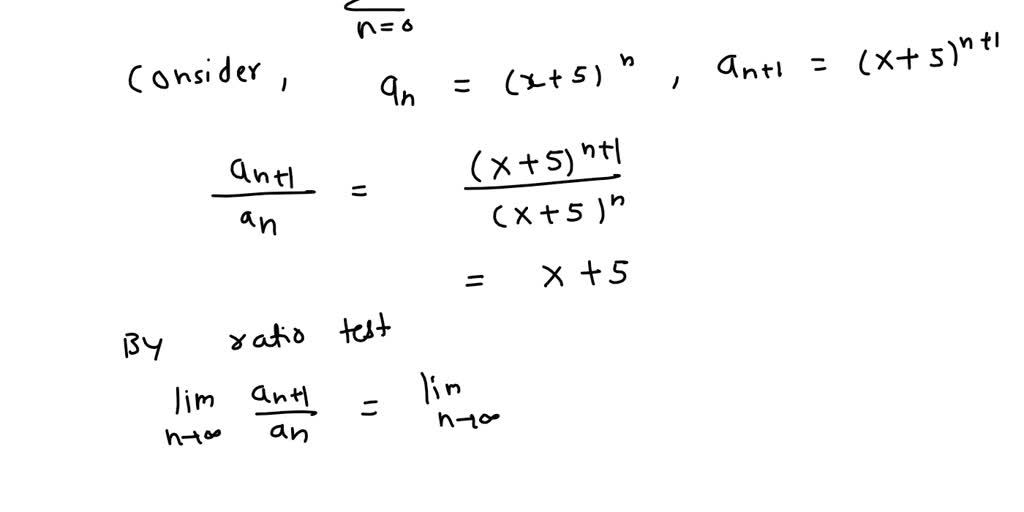 n=0
Consider, aₙ = (x+5)ⁿ, aₙ₊₁ = (x+5)ⁿ⁺¹
aₙ₊₁/aₙ = (x+5)ⁿ⁺¹/(x+5)ⁿ
= x+5
By ratio test
lim n→∞ aₙ₊₁/aₙ = lim n→∞